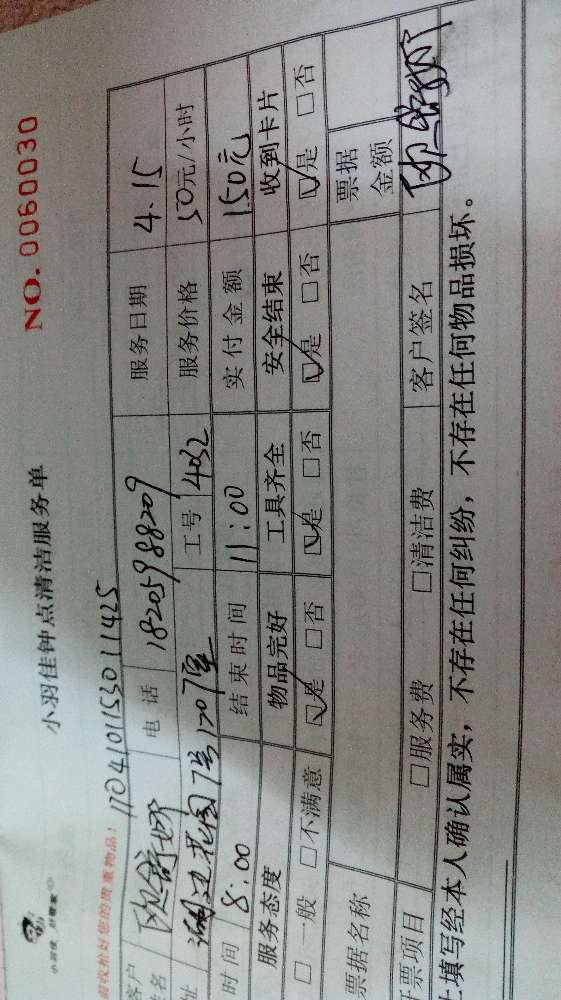 小羽佳 好管家
小羽佳钟点清洁服务单
NO. 0060030
请收拾好您的贵重物品！ 1704101153011425
客户姓名 欧舒妤 电话 18205988209 服务日期 4.15
地址 湖边花园7号1707室 工号 4032 服务价格 50元/小时
时间 8:00 结束时间 11:00 实付金额 150元
服务态度 物品完好 工具齐全 安全结束 收到卡片
□一般 □不满意 ☑是 □否 ☑是 □否 ☑是 □否 ☑是 □否
票据名称 票据金额
开票项目 □服务费 □清洁费 客户签名 欧舒妤
上填写经本人确认属实，不存在任何纠纷，不存在任何物品损坏。